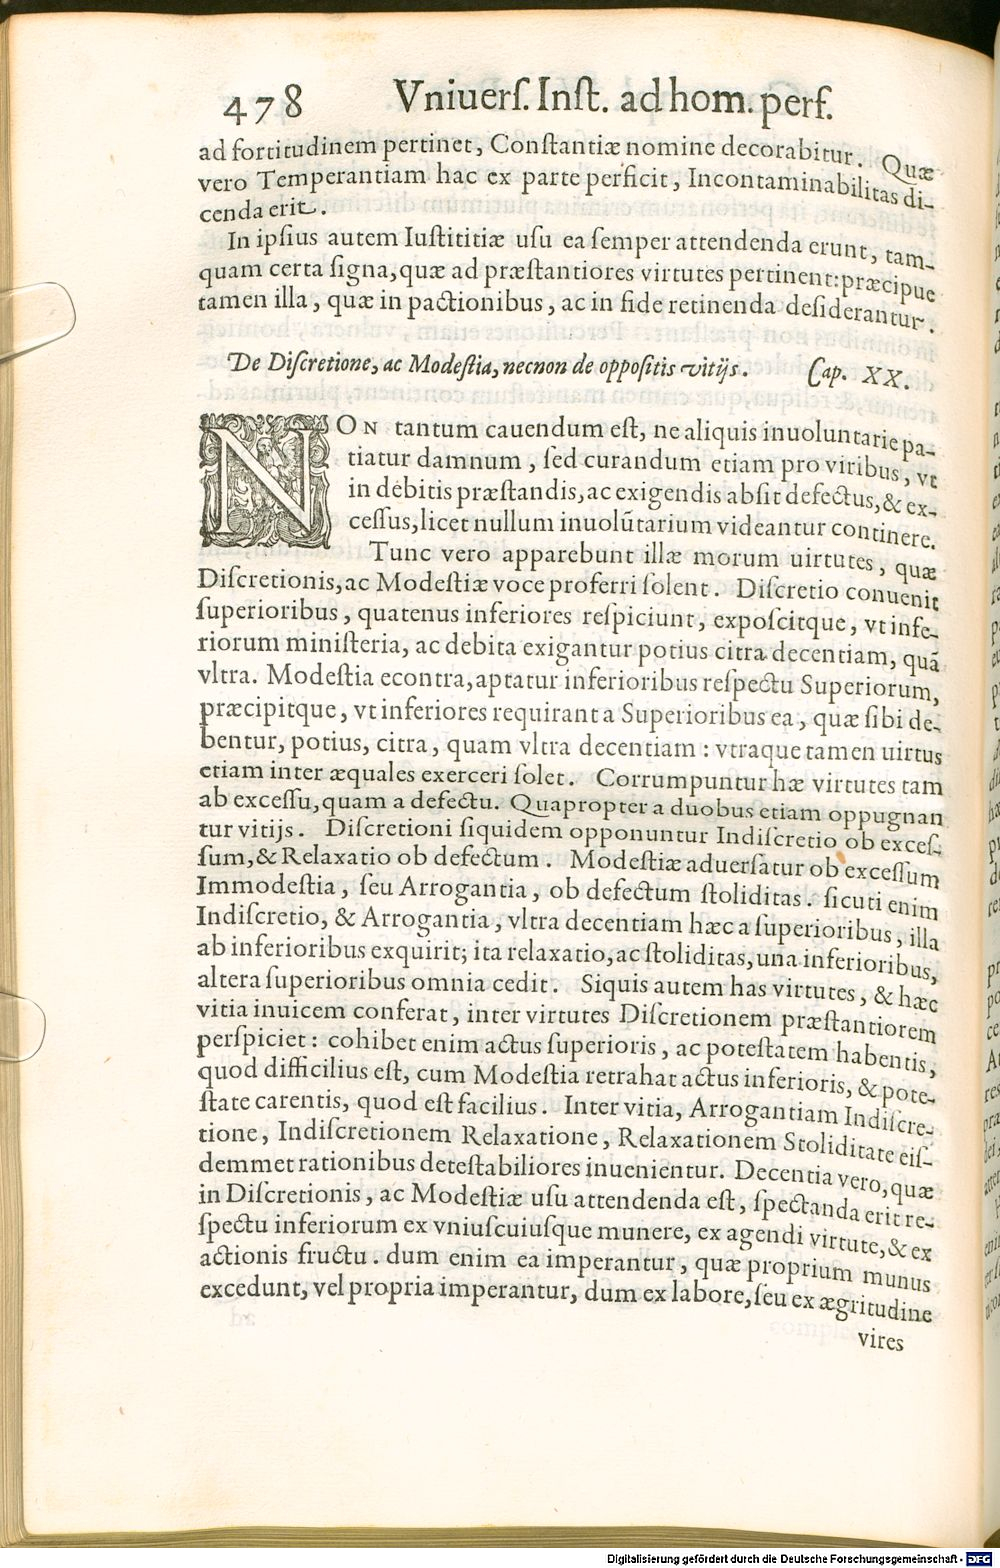 478 Vniuerſ. Inſt. ad hom. perf.
ad fortitudinem pertinet, Conſtantiæ nomine decorabitur. Quæ
vero Temperantiam hac ex parte perficit, Incontaminabilitas di-
cenda erit.
In ipſius autem Iuſtititiæ uſu ea ſemper attendenda erunt, tam-
quam certa ſigna, quæ ad præſtantiores virtutes pertinent: præcipue
tamen illa, quæ in pactionibus, ac in fide retinenda deſiderantur.
De Diſcretione, ac Modeſtia, necnon de oppoſitis vitijs. Cap. XX.
NON tantum cauendum eſt, ne aliquis inuoluntarie pa-
tiatur damnum, ſed curandum etiam pro viribus, vt
in debitis præſtandis, ac exigendis abſit defectus, & ex-
ceſſus, licet nullum inuolũtarium videantur continere.
Tunc vero apparebunt illæ morum uirtutes, quæ
Diſcretionis, ac Modeſtiæ voce proferri ſolent. Diſcretio conuenit
ſuperioribus, quatenus inferiores reſpiciunt, expoſcitque, vt infe-
riorum miniſteria, ac debita exigantur potius citra decentiam, quã
vltra. Modeſtia econtra, aptatur inferioribus reſpectu Superiorum,
præcipitque, vt inferiores requirant a Superioribus ea, quæ ſibi de-
bentur, potius, citra, quam vltra decentiam: vtraque tamen uirtus
etiam inter æquales exerceri ſolet. Corrumpuntur hæ virtutes tam
ab exceſſu, quam a defectu. Quapropter a duobus etiam oppugnan
tur vitijs. Diſcretioni ſiquidem opponuntur Indiſcretio ob exceſ-
ſum, & Relaxatio ob defectum. Modeſtiæ aduerſatur ob exceſſum
Immodeſtia, ſeu Arrogantia, ob defectum ſtoliditas. ſicuti enim
Indiſcretio, & Arrogantia, vltra decentiam hæc a ſuperioribus, illa
ab inferioribus exquirit; ita relaxatio, ac ſtoliditas, una inferioribus,
altera ſuperioribus omnia cedit. Siquis autem has virtutes, & hæc
vitia inuicem conferat, inter virtutes Diſcretionem præſtantiorem
perſpiciet: cohibet enim actus ſuperioris, ac poteſtatem habentis,
quod difficilius eſt, cum Modeſtia retrahat actus inferioris, & pote-
ſtate carentis, quod eſt facilius. Inter vitia, Arrogantiam Indiſcre-
tione, Indiſcretionem Relaxatione, Relaxationem Stoliditate eiſ-
demmet rationibus deteſtabiliores inuenientur. Decentia vero, quæ
in Diſcretionis, ac Modeſtiæ uſu attendenda eſt, ſpectanda erit re-
ſpectu inferiorum ex vniuſcuiuſque munere, ex agendi virtute, & ex
actionis fructu. dum enim ea imperantur, quæ proprium munus
excedunt, vel propria imperantur, dum ex labore, ſeu ex ægritudine
vires
Digitalisierung gefördert durch die Deutsche Forschungsgemeinschaft - DFG